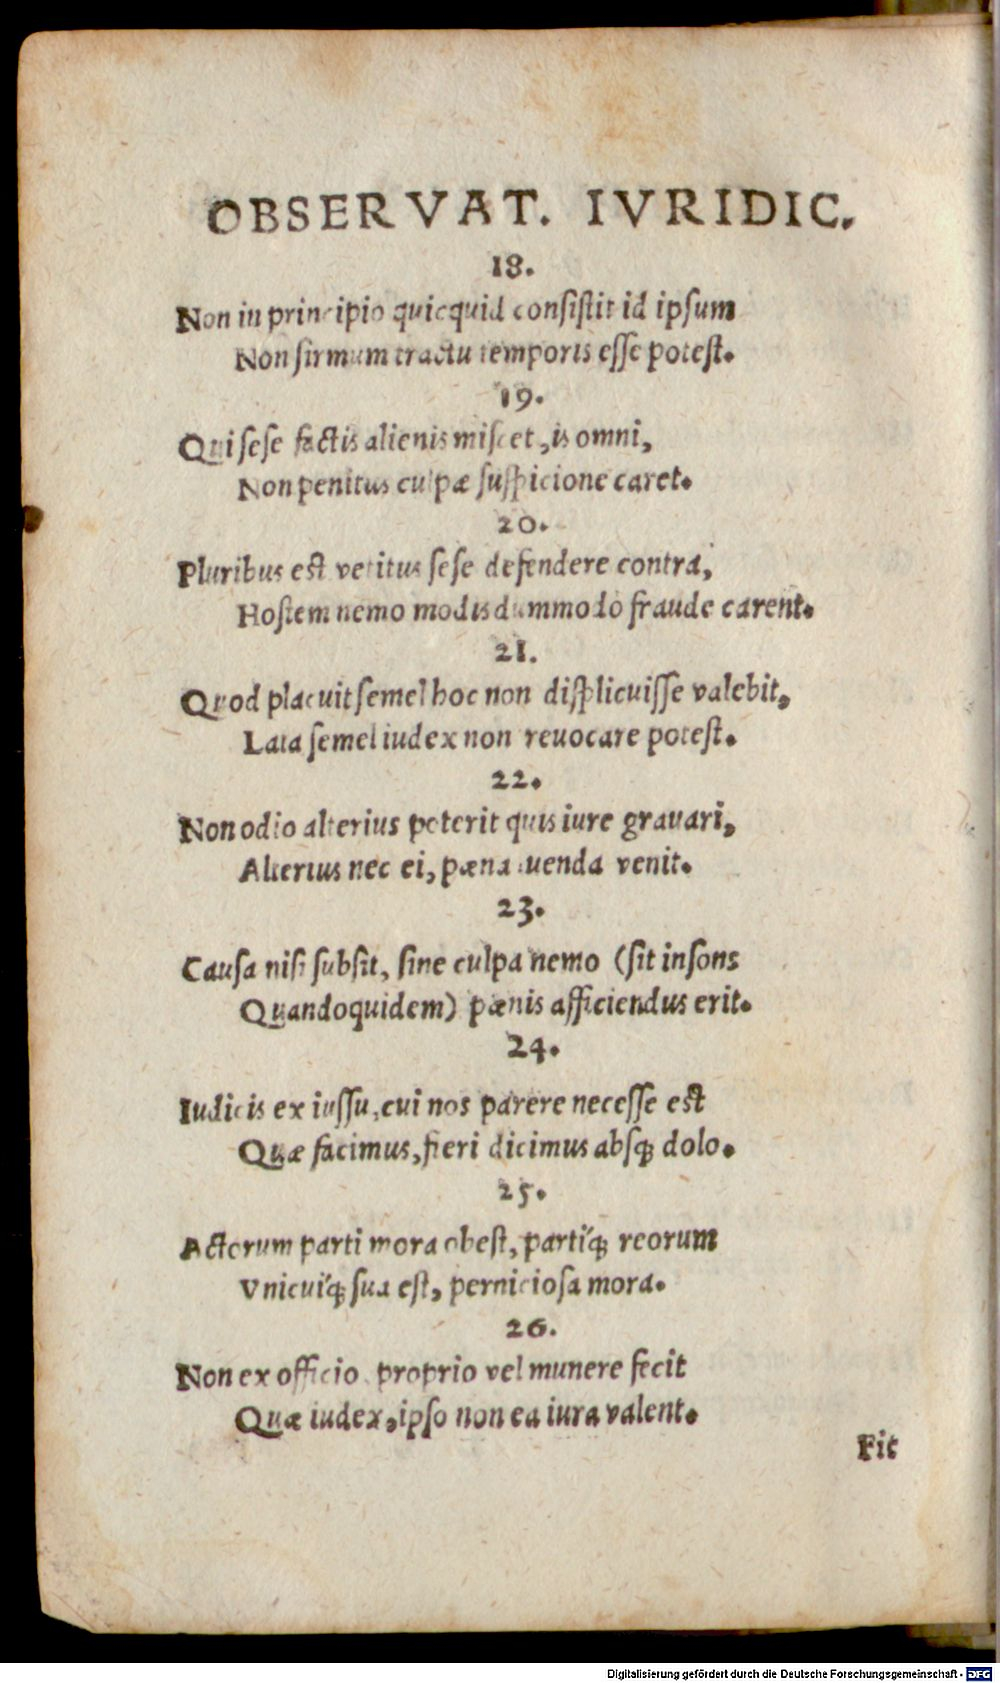 OBSERVAT. IVRIDIC.
18.
Non in principio quicquid consistit id ipsum
Non firmum tractu temporis esse potest.
19.
Qui sese factis alienis miscet, is omni,
Non penitus culpæ suspicione caret.
20.
Pluribus est vetitus sese defendere contra,
Hostem nemo modis dummodo fraude carent.
21.
Quod placuit semel hoc non displicuisse valebit,
Lata semel iudex non revocare potest.
22.
Non odio alterius poterit quis iure gravari,
Alterius nec ei, pæna luenda venit.
23.
Causa nisi subsit, sine culpa nemo (sit insons
Quandoquidem) pænis afficiendus erit.
24.
Iudicis ex iussu, cui nos parere necesse est
Quæ facimus, fieri dicimus absq; dolo.
25.
Actorum parti mora obest, partiq́; reorum
Vnicuiq́; sua est, perniciosa mora.
26.
Non ex officio proprio vel munere fecit
Quæ iudex, ipso non ea iura valent.
Fit
Digitalisierung gefördert durch die Deutsche Forschungsgemeinschaft - DFG